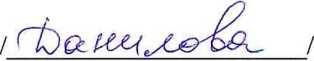 / Данилова /